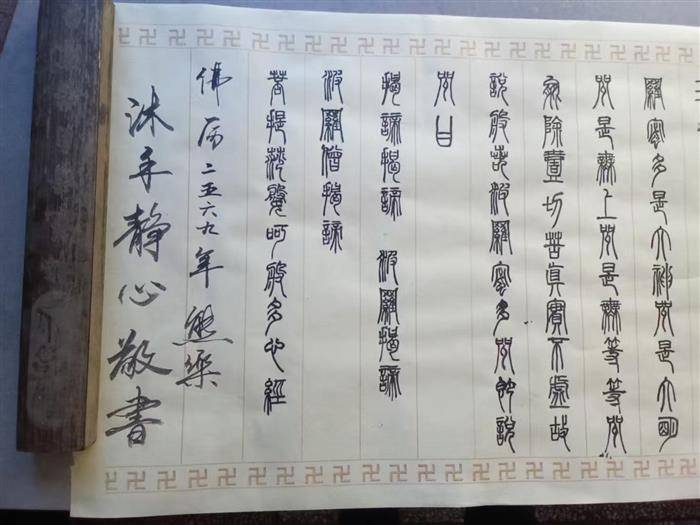 羅蜜多是大神咒是大明
咒是無上咒是無等等咒
能除壹切苦真實不虛故
說般若波羅蜜多咒即說
咒曰
揭諦揭諦 波羅揭諦
波羅僧揭諦
菩提薩婆呵般多心經
佛历二五六九年熊樂
沐手靜心敬書